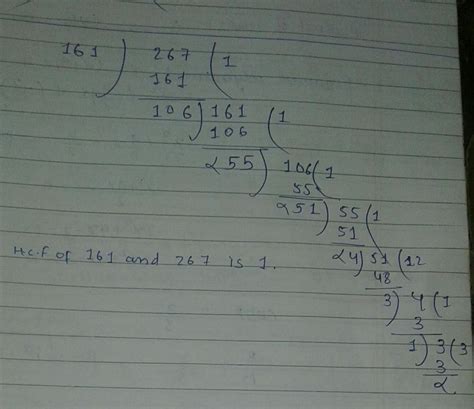 161 ) 267 ( 1
161
106 ) 161 ( 1
106
α55 ) 106 ( 1
55
α51 ) 55 ( 1
51
α4 ) 51 ( 12
48
3 ) 4 ( 1
3
1 ) 3 ( 3
3
α
H.C.F of 161 and 267 is 1.